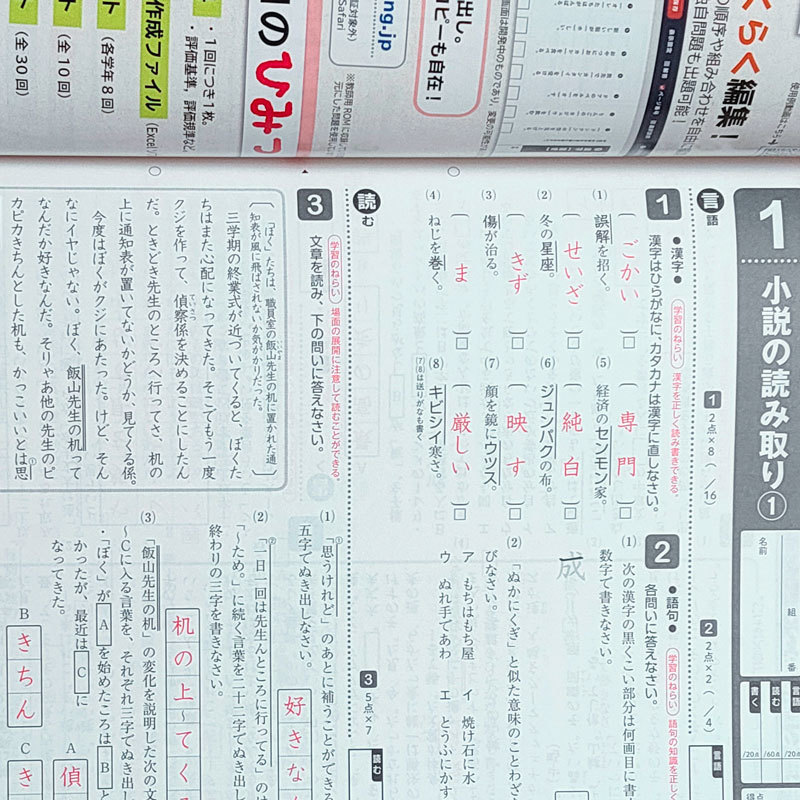 らく編集！
の順序や組み合わせを自由
自問題も出題可能！
画面は開発中のものであり、変更の可能性が
出し。
コピーも自在！
ng.jp
証対象外)
Safari
※教師用ROMに収録してい
元にした問題を使用しない
のひみつ
・1回につき1枚。
・評価基準，評価規準など
作成ファイル
(Excel
ト
(各学年8回)
ト
(全10回)
ト
(全30回)
1
小説の読み取り①
名前
組
番
言語
読む
書く
/20点
/60点
/20点
得点
言語
1
2点×8（ ／16）
2
2点×2（ ／4）
言語
1
●漢字●
学習のねらい
漢字を正しく読み書きできる。
漢字はひらがなに、カタカナは漢字に直しなさい。
(1)
誤解を招く。
（ごかい）□
(2)
冬の星座。
（せいざ）□
(3)
傷が治る。
（きず）□
(4)
ねじを巻く。
（ま）□
(5)
経済のセンモン家。
（専門）□
(6)
ジュンパクの布。
（純白）□
(7)
顔を鏡にウツス。
（映す）□
(8)
キビシイ寒さ。
（厳しい）□
(7)(8)は送りがなも書く
2
●語句●
学習のねらい
語句の知識を正しく
各問いに答えなさい。
(1)
次の漢字の黒くこい部分は何画目に書
数字で書きなさい。
成
(2)
「ぬかにくぎ」と似た意味のことわざ
びなさい。
ア もちはもち屋
イ 焼け石に水
ウ ぬれ手であわ
エ とうふにかす
読む
3
5点×7
読む
3
学習のねらい
場面の展開に注意して読むことができる。
文章を読み、下の問いに答えなさい。
「ぼく」たちは、職員室の飯山先生の机に置かれた通
知表が風に飛ばされないか気がかりだった。
三学期の終業式が近づいてくると、ぼくた
ちはまた心配になってきた。そこでもう一度
クジを作って、偵察係を決めることにしたん
だ。ときどき先生のところへ行ってさ、机の
上に通知表が置いてないかどうか、見てくる係。
今度はぼくがクジにあたった。けど、そん
なにイヤじゃない。ぼく、飯山先生の机って
なんだか好きなんだ。そりゃあ他の先生のピ
カピカきちんとした机も、かっこいいとは思
①
(1)
「思うけれど」のあとに補うことができる
五字でぬき出しなさい。
好きなん
(2)
「一日一回は先生んとこに行ってる」のは
「～ため。」に続く言葉を二十二字でぬき出し
終わりの三字を書きなさい。
机の上～てくる
(3)
「飯山先生の机」の変化を説明した次の文
～Cに入る言葉を、それぞれ三字でぬき出し
・「ぼく」がAを始めたころはBと
かったが、最近はCに
なってきた。
A
偵
B
きちん
C
き